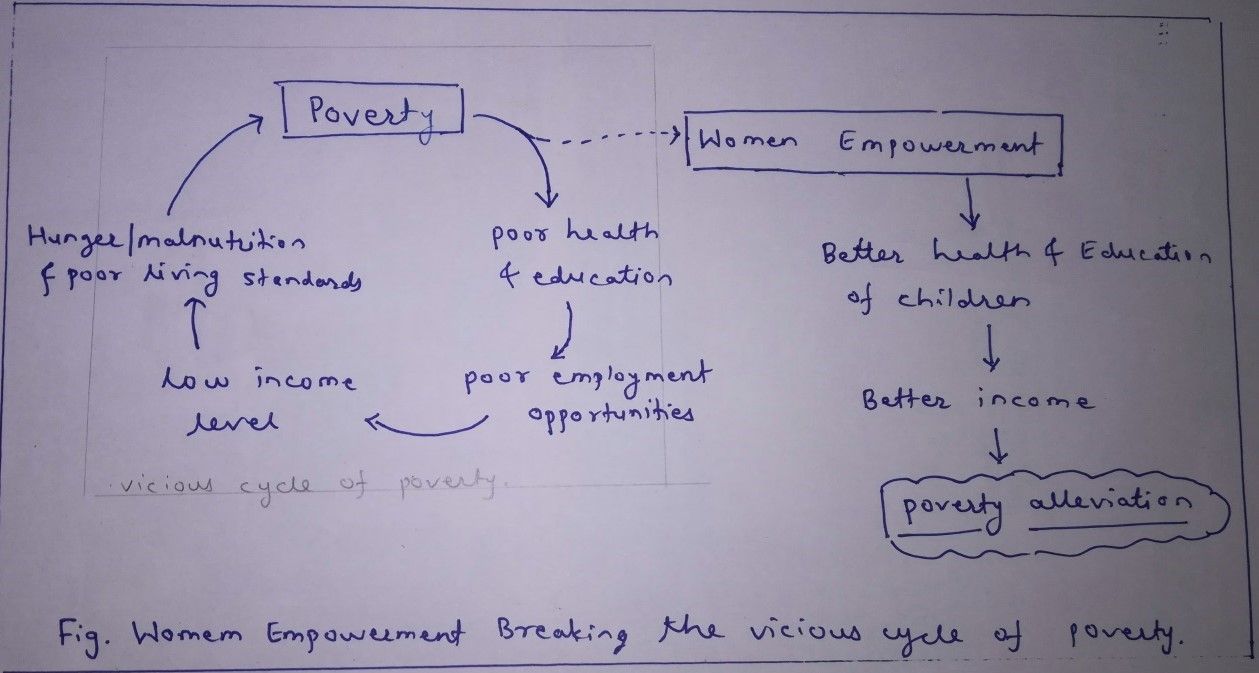 Poverty
Women Empowerment
Hunger/malnutrition
& poor living standards
poor health
& education
Better health & Education
of children
low income
level
poor employment
opportunities
Better income
vicious cycle of poverty.
poverty alleviation
Fig. Women Empowerment Breaking the vicious cycle of poverty.